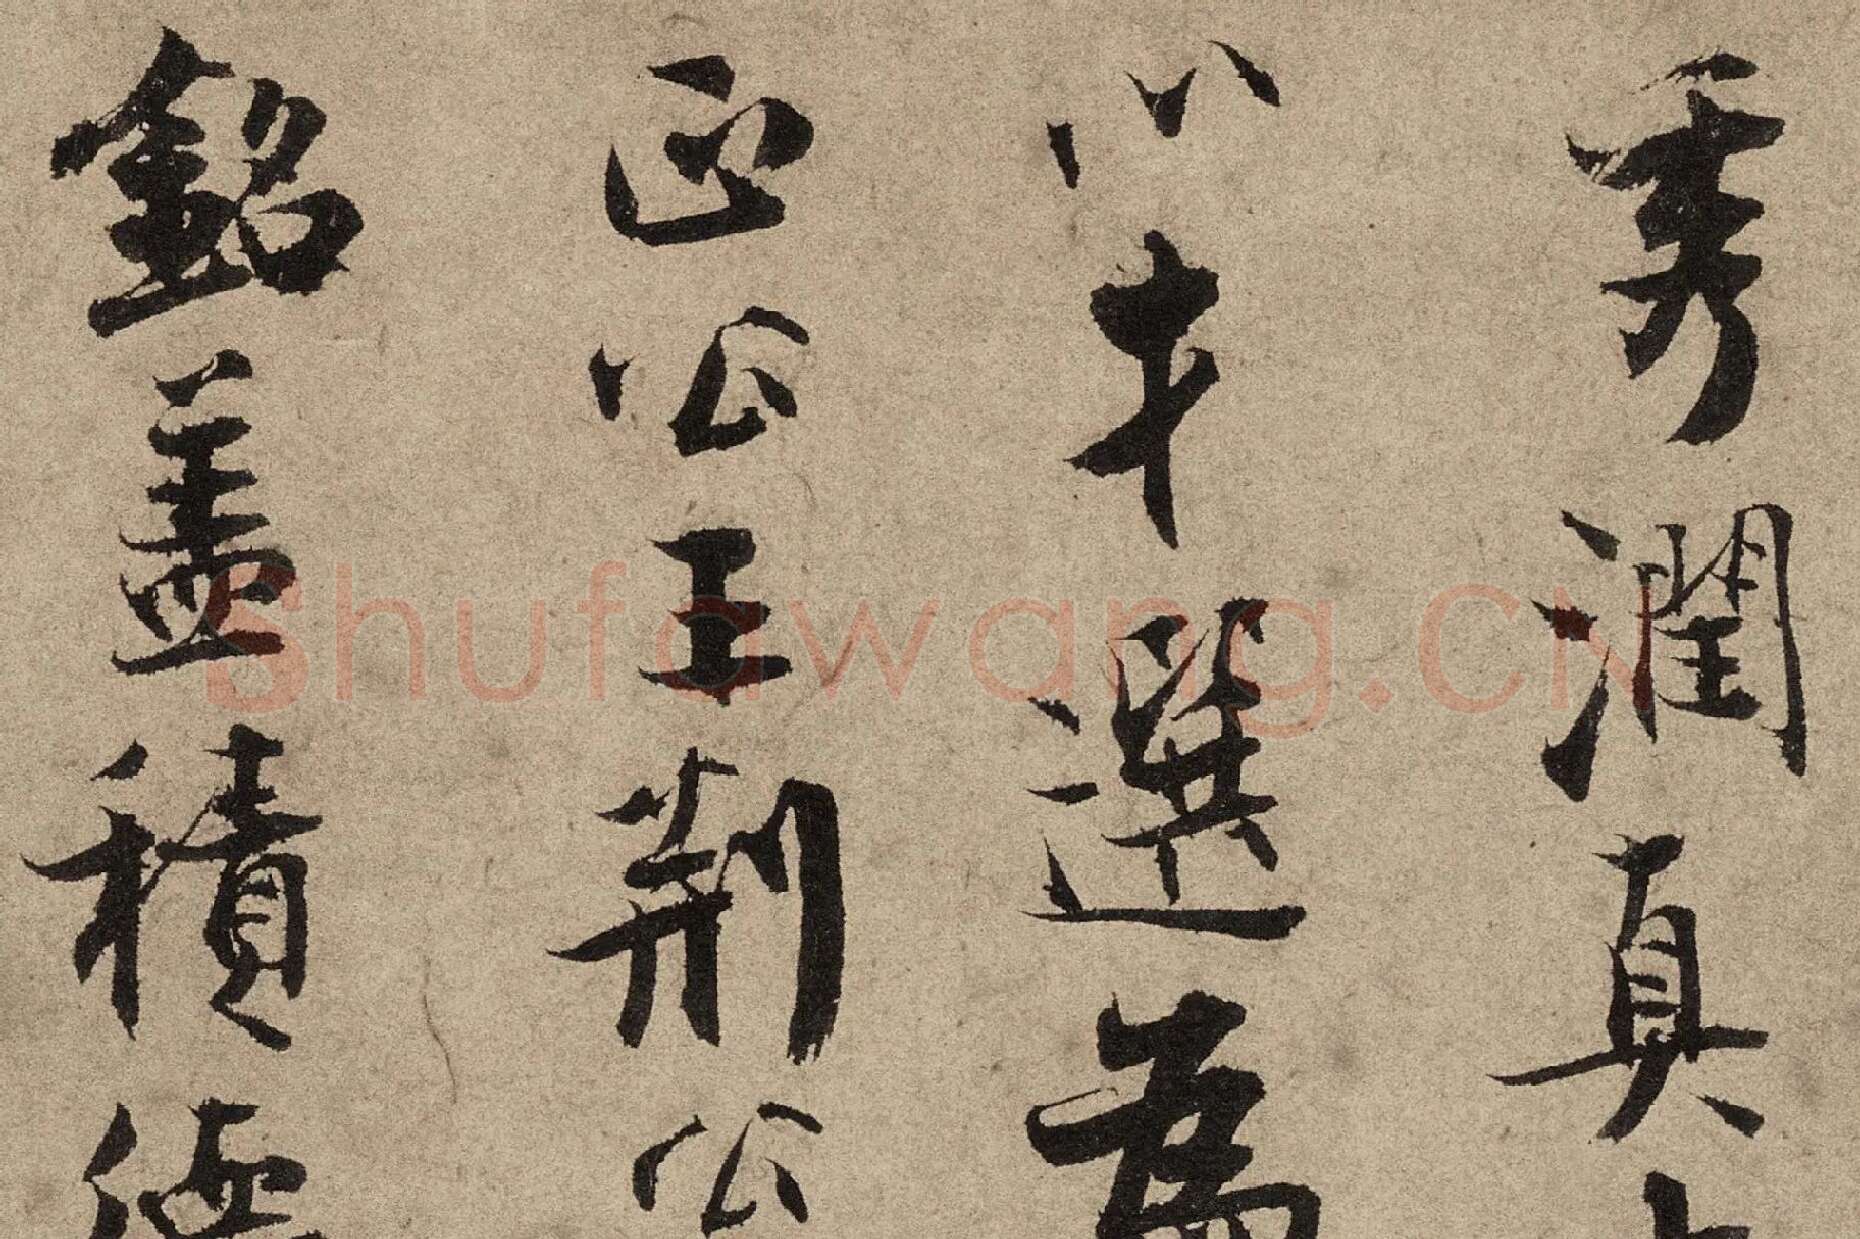 秀潤真
以才選為
正公王荊公
銘蓋積德
Shufawang.CN